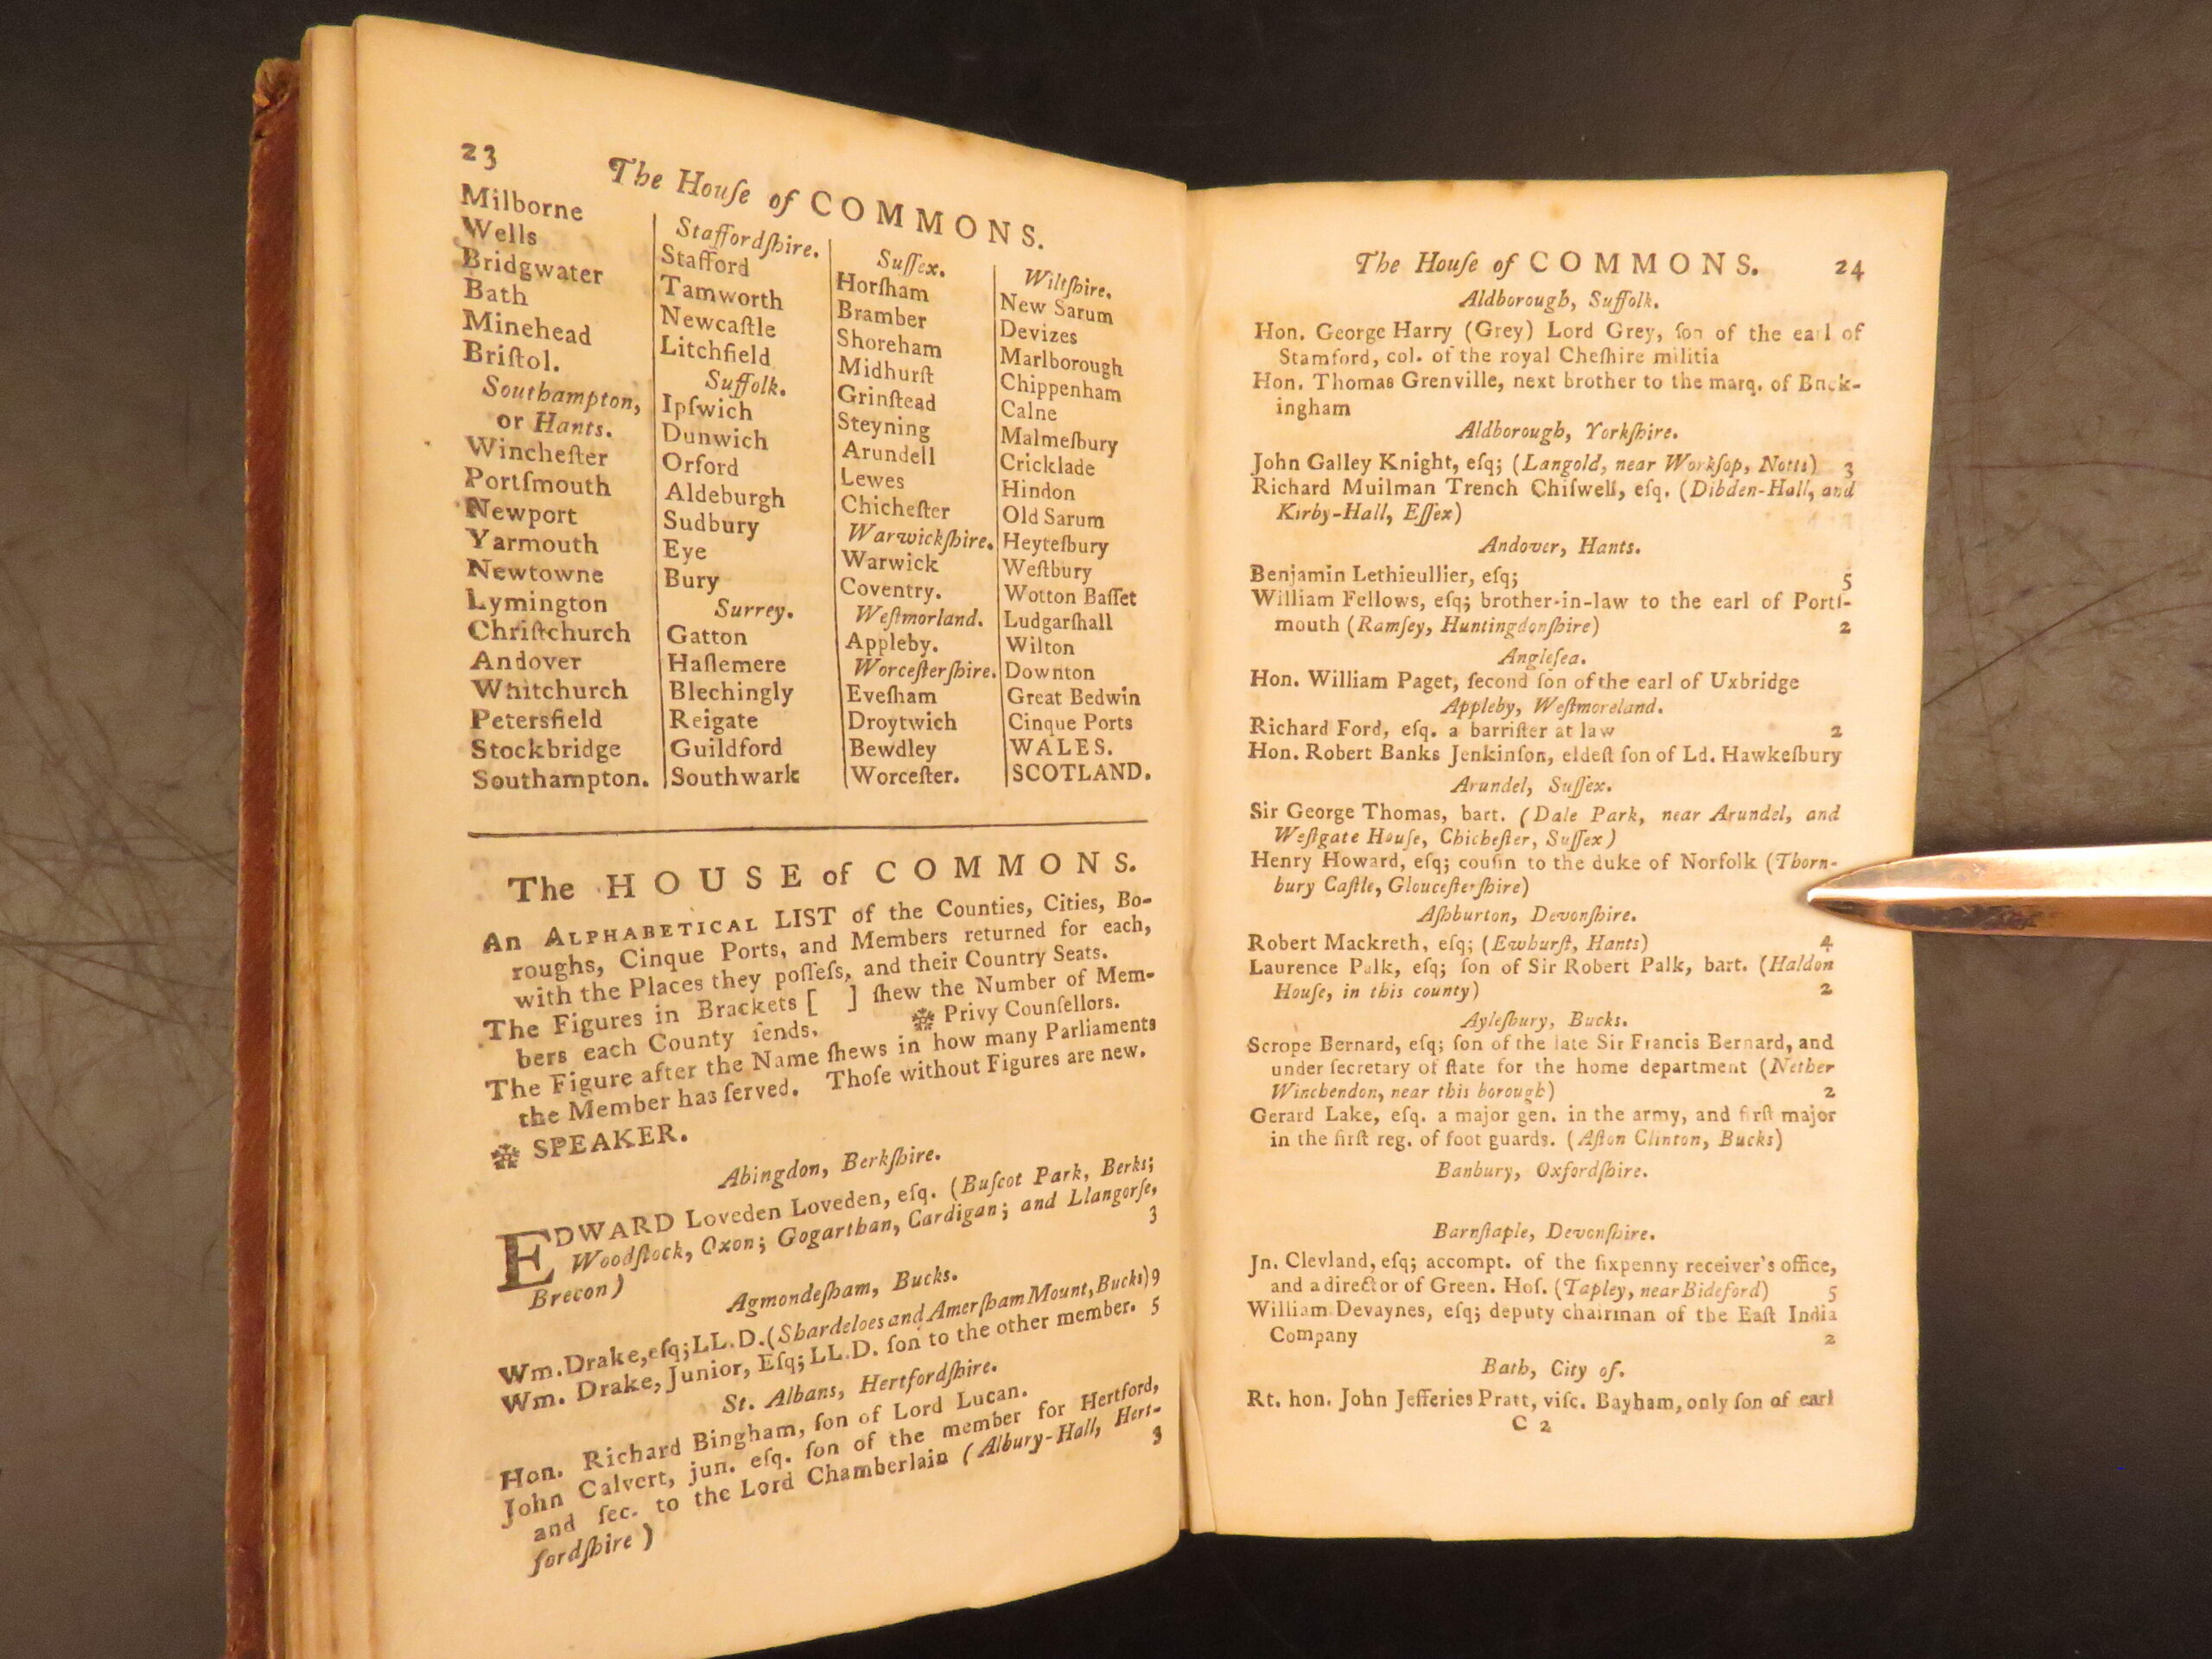 23
The Houſe of COMMONS.
Milborne
Wells
Bridgwater
Bath
Minehead
Briſtol.
Southampton,
or Hants.
Wincheſter
Portſmouth
Newport
Yarmouth
Newtowne
Lymington
Chriſtchurch
Andover
Whitchurch
Petersfield
Stockbridge
Southampton.
Staffordſhire.
Stafford
Tamworth
Newcaſtle
Litchfield
Suffolk.
Ipſwich
Dunwich
Orford
Aldeburgh
Sudbury
Eye
Bury
Surrey.
Gatton
Haſlemere
Blechingly
Reigate
Guildford
Southwark
Suſſex.
Horſham
Bramber
Shoreham
Midhurſt
Grinſtead
Steyning
Arundell
Lewes
Chicheſter
Warwickſhire.
Warwick
Coventry.
Weſtmorland.
Appleby.
Worceſterſhire.
Eveſham
Droytwich
Bewdley
Worceſter.
Wiltſhire.
New Sarum
Devizes
Marlborough
Chippenham
Calne
Malmeſbury
Cricklade
Hindon
Old Sarum
Heyteſbury
Weſtbury
Wotton Baſſet
Ludgarſhall
Wilton
Downton
Great Bedwin
Cinque Ports
WALES.
SCOTLAND.
The HOUSE of COMMONS.
An ALPHABETICAL LIST of the Counties, Cities, Bo-
roughs, Cinque Ports, and Members returned for each,
with the Places they poſſeſs, and their Country Seats.
The Figures in Brackets [ ] ſhew the Number of Mem-
bers each County ſends. ❉ Privy Counſellors.
The Figure after the Name ſhews in how many Parliaments
the Member has ſerved. Thoſe without Figures are new.
❉ SPEAKER.
Abingdon, Berkſhire.
EDWARD Loveden Loveden, eſq. (Buſcot Park, Berks;
Woodſtock, Oxon; Gogarthan, Cardigan; and Llangorſe,
Brecon) 3
Agmondeſham, Bucks.
Wm. Drake, eſq; LL.D. (Shardeloes and Amerſham Mount, Bucks) 9
Wm. Drake, Junior, Eſq; LL.D. ſon to the other member. 5
St. Albans, Hertfordſhire.
Hon. Richard Bingham, ſon of Lord Lucan.
John Calvert, jun. eſq. ſon of the member for Hertford,
and ſec. to the Lord Chamberlain (Albury-Hall, Hert-
fordſhire) 3
The Houſe of COMMONS. 24
Aldborough, Suffolk.
Hon. George Harry (Grey) Lord Grey, ſon of the earl of
Stamford, col. of the royal Cheſhire militia
Hon. Thomas Grenville, next brother to the marq. of Buck-
ingham
Aldborough, Yorkſhire.
John Galley Knight, eſq; (Langold, near Workſop, Notts) 3
Richard Muilman Trench Chiſwell, eſq. (Dibden-Hall, and
Kirby-Hall, Eſſex)
Andover, Hants.
Benjamin Lethieullier, eſq; 5
William Fellows, eſq; brother-in-law to the earl of Portſ-
mouth (Ramſey, Huntingdonſhire) 2
Angleſea.
Hon. William Paget, ſecond ſon of the earl of Uxbridge
Appleby, Weſtmoreland.
Richard Ford, eſq. a barriſter at law 2
Hon. Robert Banks Jenkinſon, eldeſt ſon of Ld. Hawkeſbury
Arundel, Suſſex.
Sir George Thomas, bart. (Dale Park, near Arundel, and
Weſtgate Houſe, Chicheſter, Suſſex)
Henry Howard, eſq; couſin to the duke of Norfolk (Thorn-
bury Caſtle, Glouceſterſhire)
Aſhburton, Devonſhire.
Robert Mackreth, eſq; (Ewhurſt, Hants) 4
Laurence Palk, eſq; ſon of Sir Robert Palk, bart. (Haldon
Houſe, in this county) 2
Ayleſbury, Bucks.
Scrope Bernard, eſq; ſon of the late Sir Francis Bernard, and
under ſecretary of ſtate for the home department (Nether
Winchendon, near this borough) 2
Gerard Lake, eſq. a major gen. in the army, and firſt major
in the firſt reg. of foot guards. (Aſton Clinton, Bucks)
Banbury, Oxfordſhire.
Barnſtaple, Devonſhire.
Jn. Clevland, eſq; accompt. of the ſixpenny receiver's office,
and a director of Green. Hoſ. (Tapley, near Bideford) 5
William Devaynes, eſq; deputy chairman of the Eaſt India
Company 2
Bath, City of.
Rt. hon. John Jefferies Pratt, viſc. Bayham, only ſon of earl
C 2